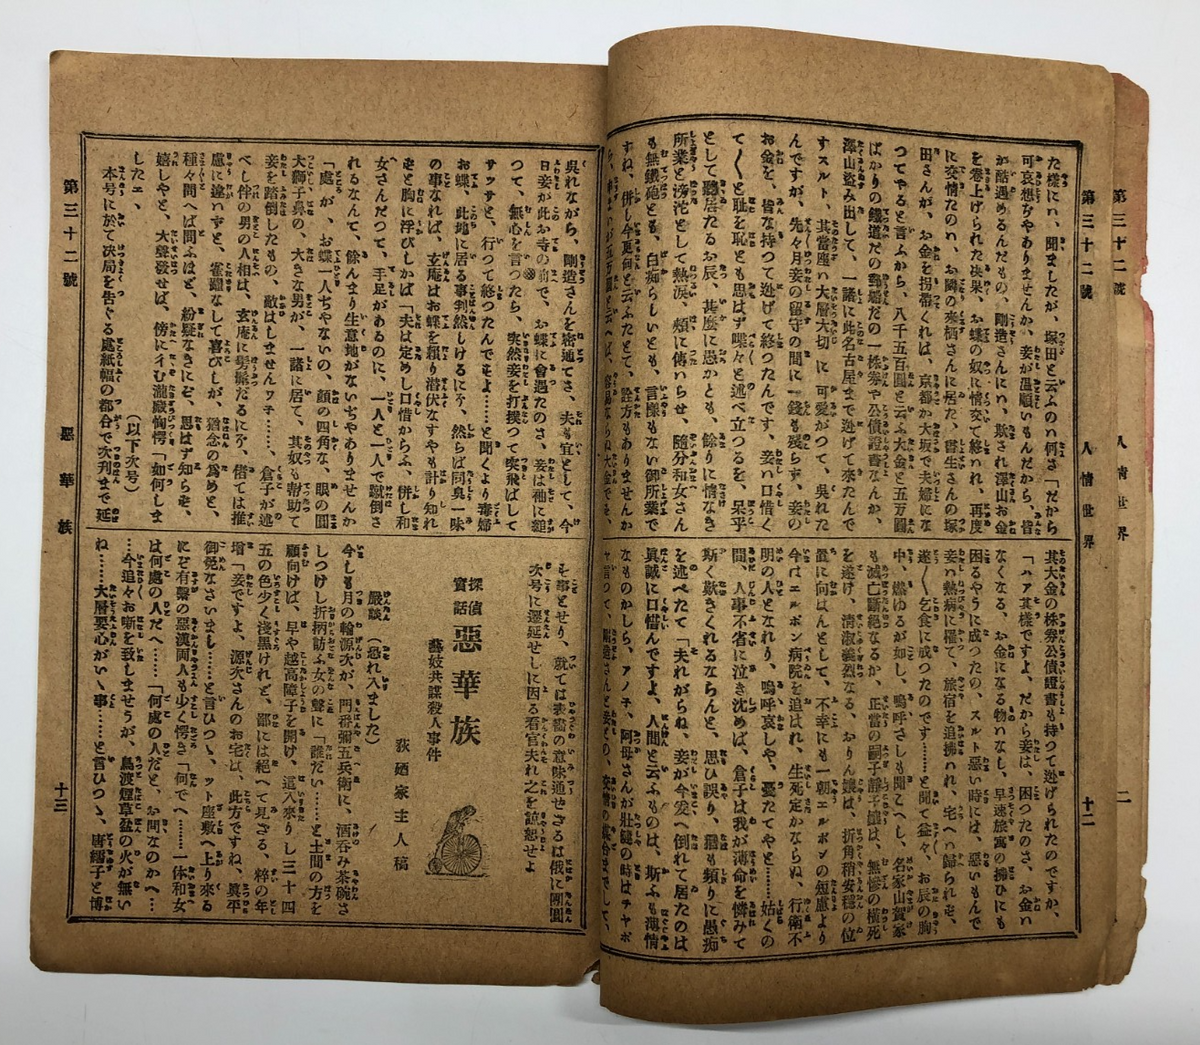 第三十二號
人情世界
二
第三十二號
人情世界
十二
た樣にハ、聞ましたが、塚田と云ふのハ何さ「だから
可哀想ぢやありませんか、妾が溫順いもんだから、皆
が酷遇めるんだもの、剛造さんにハ、欺され澤山お金
を卷上げられた决果、お蝶の奴に情交て終ハれ、再度
に交情たのハ、お隣の來栖さんに居た、書生さんの塚
田さんが、お金を拐帶くれば、京都か大坂で夫婦にな
つてやると言ふから、八千五百圓と云ふ大金と五万圓
ばかりの鐵道だの郵船だの一株劵や公債證書なんか、
澤山盜み出して、一諸に此名古屋まで逃げて來たんで
すスルト、其當座ハ大層大切に可愛がつて、吳れた
んですが、先々月妾との留守の間に一錢も殘らず、妾の
お金を、皆な持つて逃げて終つたんです、妾ハ口惜く
て〳〵と耻を耻とも思はず喋々と述べ立つるを、呆乎
として聽居たるお辰、甚麼に愚かとも、餘りに情なき
所業と滂沱として熱涙、頬に傳いらせ、隨分和女さん
も無鐵砲とも、白痴らしいとも、言樣もない御所業で
すね、併し今更何と云ふたとて、詮方もありませんか
其大金の株劵公債證書も持つて逃げられたのですか、
「ハア其樣ですよ、だから妾は、困つたのさ、お金ハ
なくなる、お金になる物ハなし、早速旅寓の拂ひにも
困るやうに成つたの、スルト惡い時には、惡いもんで
妾ハ熱病に罹て、旅宿を追拂ハれ、宅へハ歸られず、
遂〳〵乞食に成つたのです……と聞て益々、お辰の胸
中、燃ゆるが如し、嗚呼さしも聞こへし、名家山賀家
も滅亡斷絶なるか、正當の嗣子靜子孃は、無慘の橫死
を遂け、淸淑義烈なる、おりん孃は、折角稍安穩の位
置に向はんとして、不幸にも一朝エルボンの短慮より
今はエルボン病院を追はれ、生死定かならね、行衞不
明の人となれり、嗚呼哀しや、憂たてやと……姑くの
間、人事不省に泣き沈めば、倉子は我が薄命を憐みて
斯く歎きくれるならんと、思ひ誤り、猶も頻りに愚痴
を述べたて「夫れがらね、妾が今爰へ倒れて居たのは
眞誠に口惜んですよ、人間と云ふものは、斯ふも薄情
なものかしら、アノ子、阿母さんが壯健の時はチヤボ
吳れながら、剛造さんを密通てさ、夫も宜として、今
日妾が此お寺の前で、お蝶に會遇たのさ、妾は種に錢
つて、無心を言つたら、突然妾を打撲つて突飛ばして
サツサと、行つて終つたんですよ……と聞くより毒婦
お蝶、此地に居る事判然しけるにぞ、然らば同臭一味
の事なれば、玄庵はお蝶を賴り潜伏なすやも計り知れ
ずと胸に浮びしかば「夫は定めし口惜からふ、併し和
女さんだつて、手足があるのに、一人と一人で蹴倒さ
れるなんて、餘んまり生意地がないぢやありませんか
「處が、お蝶一人ぢやないの、顏の四角な、眼の圓
大獅子鼻の、大きな男が、一諸に居て、其奴も幇助て
妾を踏倒したもの、敵はしませんツテ……、倉子が述
べし伴の男の人相は、玄庵に髣髴たるにぞ、偖ては推
慮に違ハずと、雀躍なして喜びしが、猶念の爲めと、
種々問へば問ふほど、紛疑なきにぞ、思はず知らず、
嬉しやと、大聲發せば、傍に彳む瀧嚴恟愕「如何しま
したエ、
(以下次号)
本号に於て决局を吿ぐる處紙幅の都合で次刋まで延
を事とせり、就ては表題の意味通せざるは俄に團圓
次号に遷延せしに因る看官夫れ之を諒恕せよ
探偵
實話
惡華族
藝妓共謀殺人事件
荻廼家主人稿
嚴談 (恐れ入ました)
今しも月の輪源次が、門番彌五兵衞に、酒呑み茶碗さ
しつけし折柄訪ふ女の聲に「誰だい……と土間の方を
顧向けば、早や越高障子を開け、這入來りし三十四
五の色少く淺黑けれど、鄙には絕へて見ざる、粹の年
增「妾ですよ、源次さんのお宅は、此方ですね、眞平
御免なさいまし……と言ひつゝ、ツト座敷へ上り來る
にぞ有繫の惡漢両人も少く愕き「何でへ……一体和女
は何處の人だへ……「何處の人だと、お問なのかへ…
…今追々お噺を致しませうが、鳥渡煙草盆の火が無い
ね……大層要心がいゝ事……と言ひつゝ、唐繻子と博
第三十二號
惡華族
十三